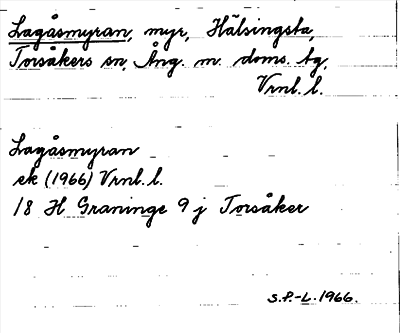 Lagåsmyran, myr, Hälsingsta,
Torsåkers sn, Ång. m. doms. tg,
Vrnl. l.
Lagåsmyran
ek (1966) Vrnl. l.
18 H Graninge 9 j Torsåker
S.P.-L. 1966.